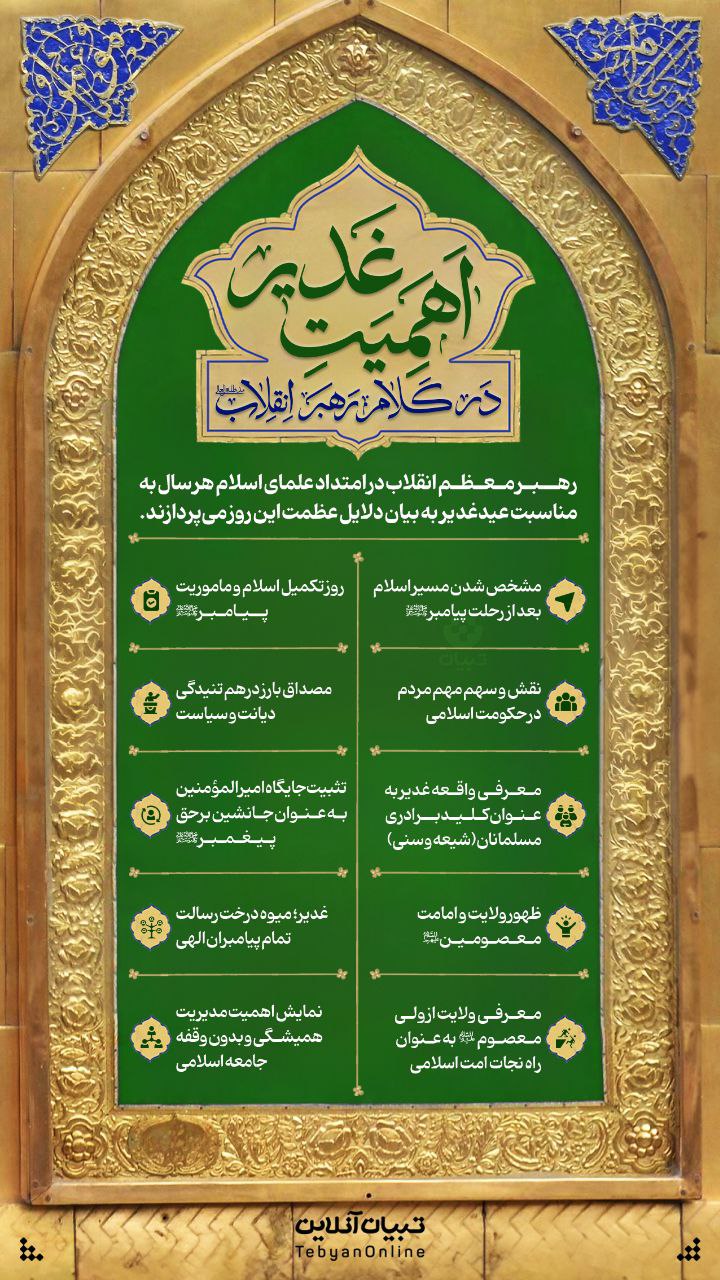 اَهَمِیَتِ غَدیر
دَر کَلام رَهبَر اِنقِلاب
رهبر معظم انقلاب در امتداد علمای اسلام هر سال به
مناسبت عید غدیر به بیان دلایل عظمت این روز می‌پردازند.
مشخص شدن مسیر اسلام
بعد از رحلت پیامبرﷺ
روز تکمیل اسلام و ماموریت
پیامبرﷺ
نقش و سهم مهم مردم
در حکومت اسلامی
مصداق بارز درهم تنیدگی
دیانت و سیاست
معرفی واقعه غدیر به
عنوان کلید برادری
مسلمانان (شیعه و سنی)
تثبیت جایگاه امیرالمؤمنین
به عنوان جانشین برحق
پیغمبرﷺ
ظهور ولایت و امامت
معصومین
غدیر؛ میوه درخت رسالت
تمام پیامبران الهی
معرفی ولایت از ولی
معصوم به عنوان
راه نجات امت اسلامی
نمایش اهمیت مدیریت
همیشگی و بدون وقفه
جامعه اسلامی
تبیان
تبیان آنلاین
TebyanOnline